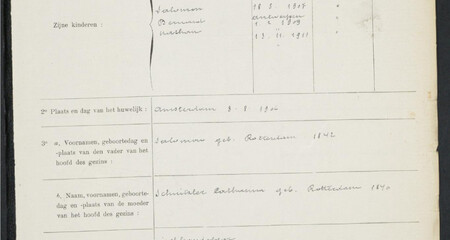 Salomon 18 8 1907 "
Zijne kinderen : Bernard Antwerpen 1. 2 1909 "
Nathan 13. 11 1911 "
2º Plaats en dag van het huwelijk : Amsterdam 8-8-190
3º a, Voornamen, geboortedag en Salomon geb. Rotterdam 1842
-plaats van den vader van het
hoofd des gezins :
b, Naam, voornamen, geboorte- geb. Rotterdam 1840
dag en -plaats van de moeder
van het hoofd des gezins :